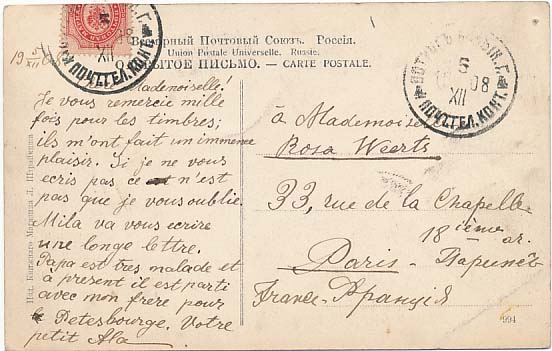 Всемірный Почтовый Союзъ. Россія.
Union Postale Universelle. Russie.
ОТКРЫТОЕ ПИСЬМО. — CARTE POSTALE.
19 5/XII 08
5
XII
08
ПОЧТ.ТЕЛ.КОНТ.
5
08
XII
ПОЧТ.ТЕЛ.КОНТ.
Mademoiselle!
Je vous remercie mille
fois pour les timbres;
ils m'ont fait un immence
plaisir. Si je ne vous
ecris pas ce n'est
pas que je vous oublie.
Mila va vous ecrire
une longe lettre.
Papa est tres malade et
à present il est parti
avec mon frere pour
Petesbourge. Votre
petit Ala
à Mademoiselle
Rosa Weerts
33, rue de la Chapelle
18 ième ar.
Paris - Парижъ
France - Франція
Изд. Книжнаго Магазина Л.
994